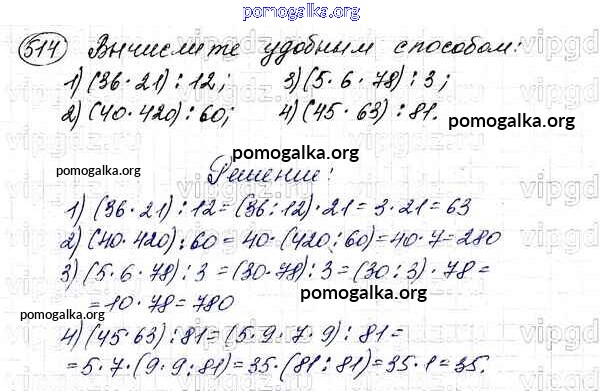 pomogalka.org
514 Вычислите удобным способом:
1) (36·21):12; 3) (5·6·78):3;
2) (40·420):60; 4) (45·63):81.
pomogalka.org
pomogalka.org
pomogalka.org
Решение:
1) (36·21):12=(36:12)·21=3·21=63
2) (40·420):60=40·(420:60)=40·7=280
3) (5·6·78):3=(30·78):3=(30:3)·78=
=10·78=780
pomogalka.org
4) (45·63):81=(5·9·7·9):81=
=5·7·(9·9:81)=35·(81:81)=35·1=35.
pomogalka.org